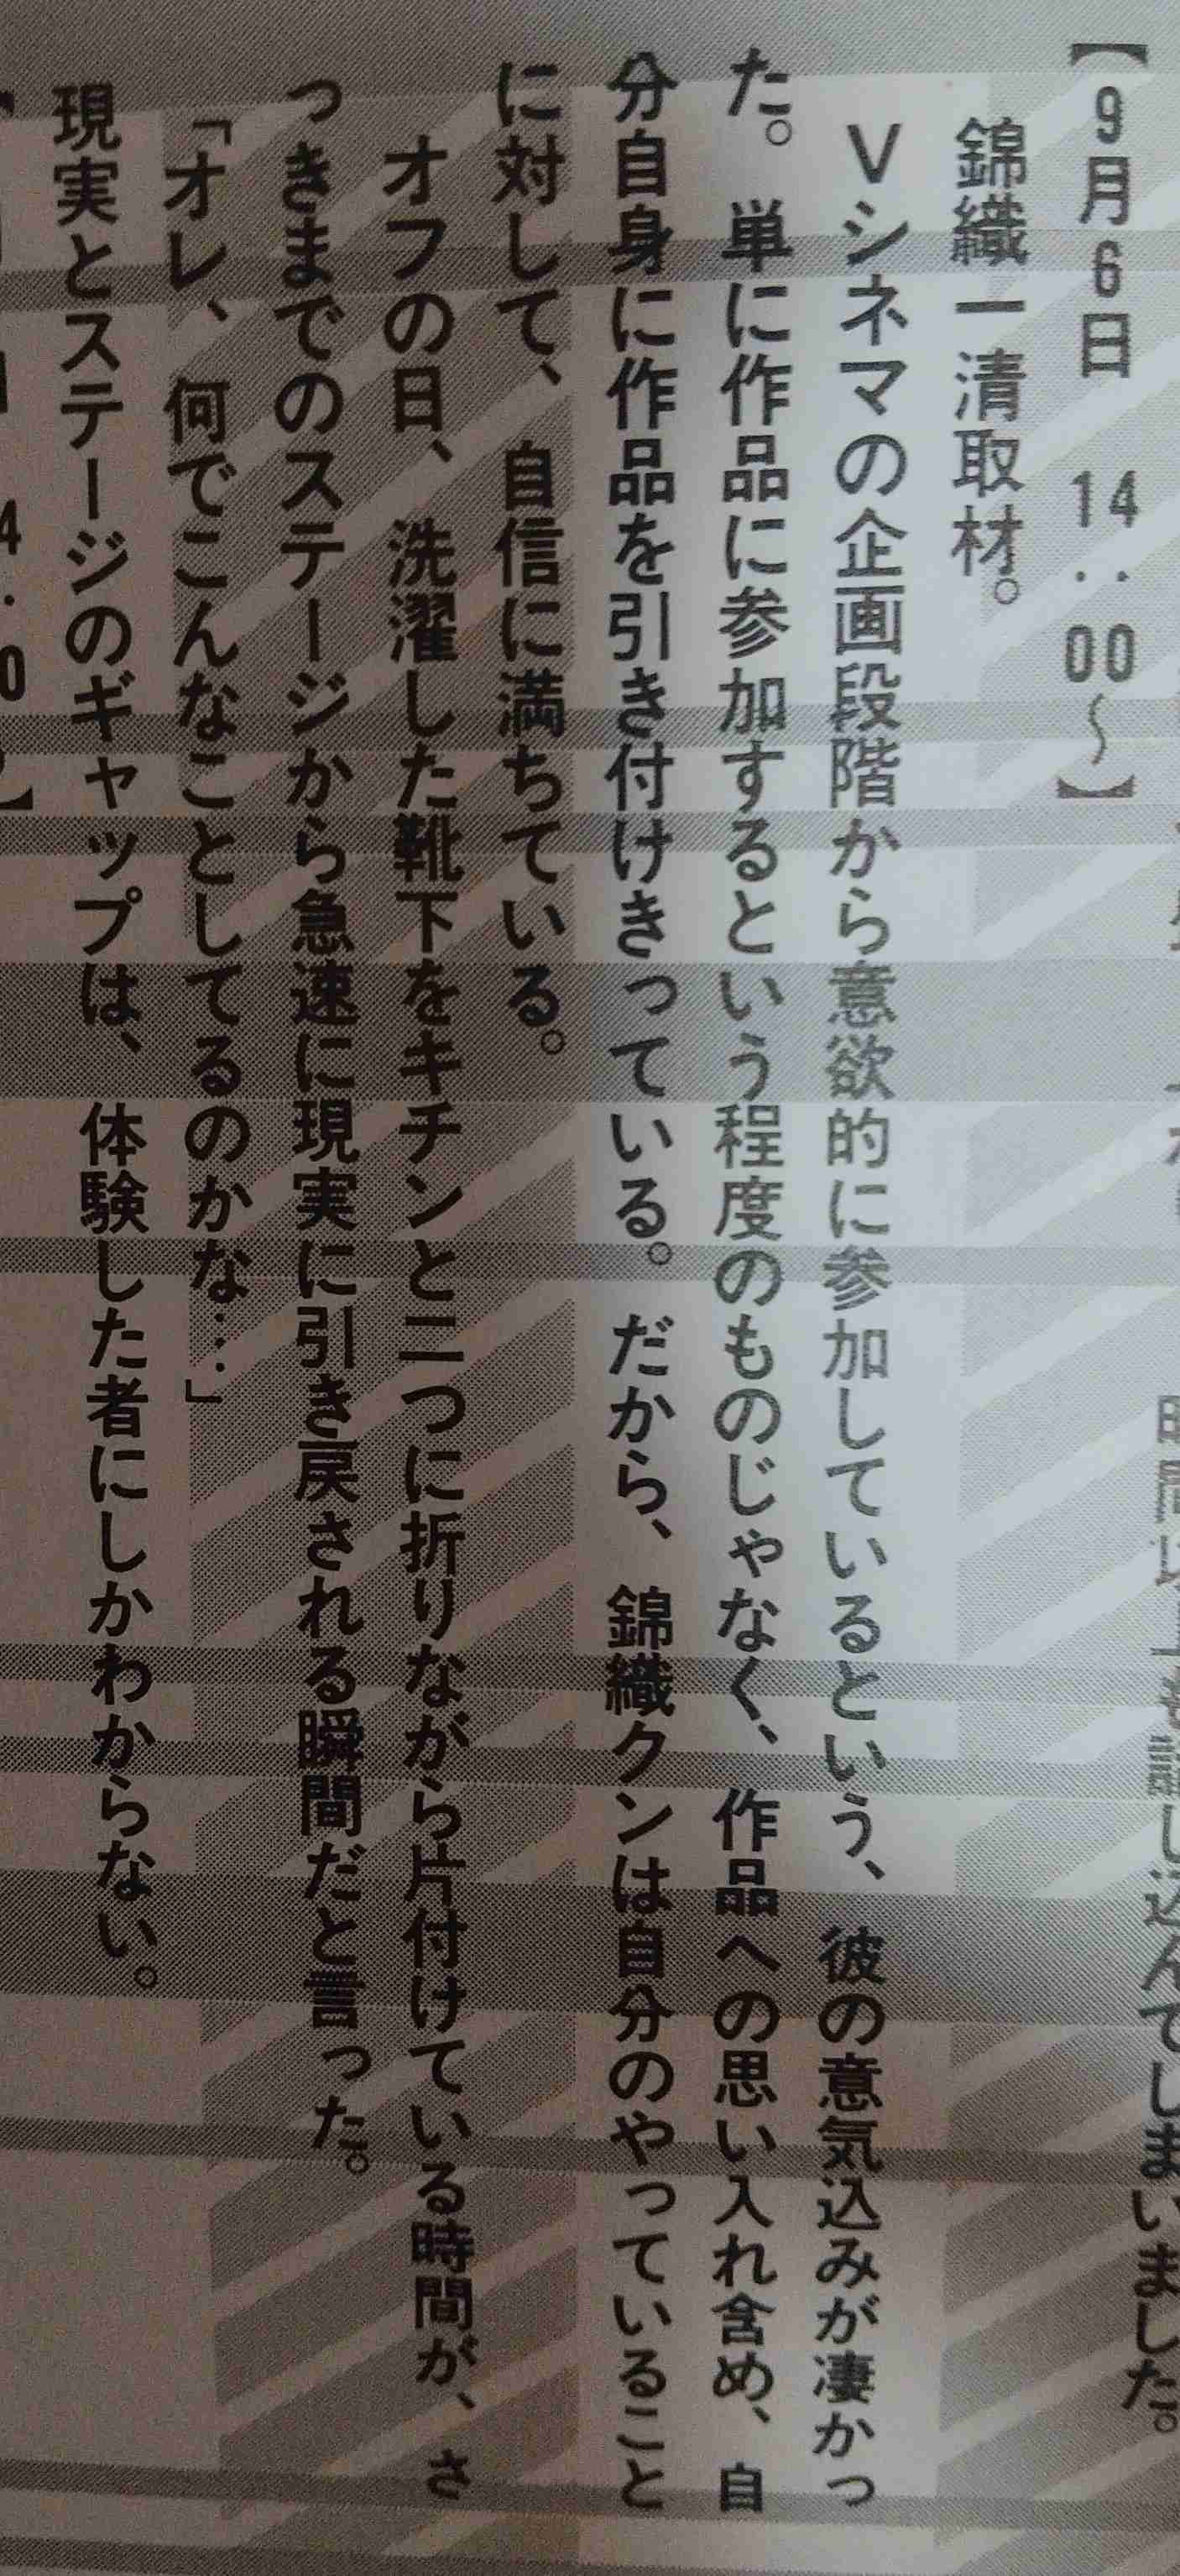 時間以上も話し込んでしまいました。
【9月6日 14:00〜】
錦織一清取材。
Vシネマの企画段階から意欲的に参加しているという、彼の意気込みが凄かっ
た。単に作品に参加するという程度のものじゃなく、作品への思い入れ含め、自
分自身に作品を引き付けきっている。だから、錦織クンは自分のやっていること
に対して、自信に満ちている。
オフの日、洗濯した靴下をキチンと二つに折りながら片付けている時間が、さ
っきまでのステージから急速に現実に引き戻される瞬間だと言った。
「オレ、何でこんなことしてるのかな…」
現実とステージのギャップは、体験した者にしかわからない。